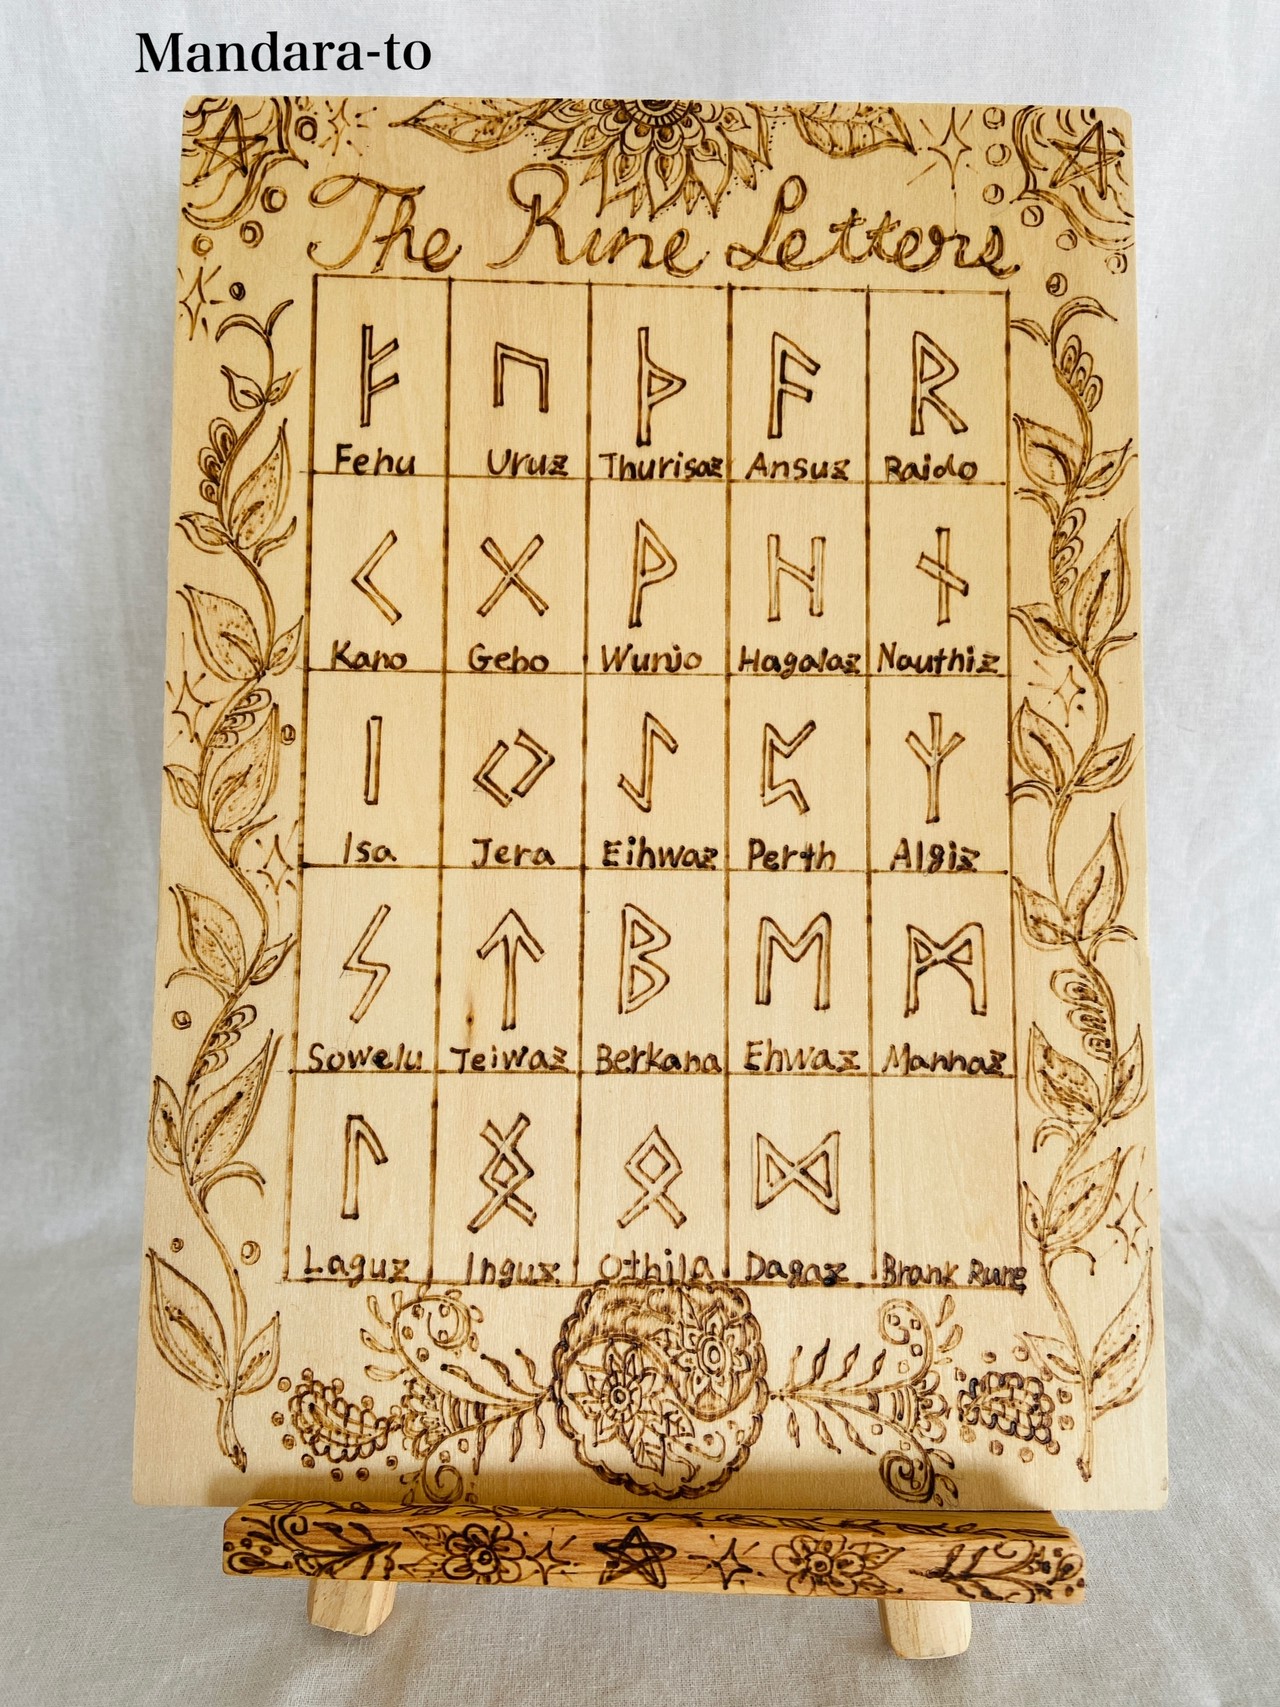 Mandara-to
The Rune Letters
ᚠ ᚢ ᚦ ᚨ ᚱ
Fehu Uruz Thurisaz Ansuz Raido
ᚲ ᚷ ᚹ ᚺ ᚾ
Kano Gebo Wunjo Hagalaz Nauthiz
ᛁ ᛃ ᛇ ᛈ ᛉ
Isa Jera Eihwaz Perth Algiz
ᛊ ᛏ ᛒ ᛖ ᛗ
Sowelu Teiwaz Berkana Ehwaz Mannaz
ᛚ ᛝ ᛟ ᛞ
Laguz Inguz Othila Dagaz Brank Rune